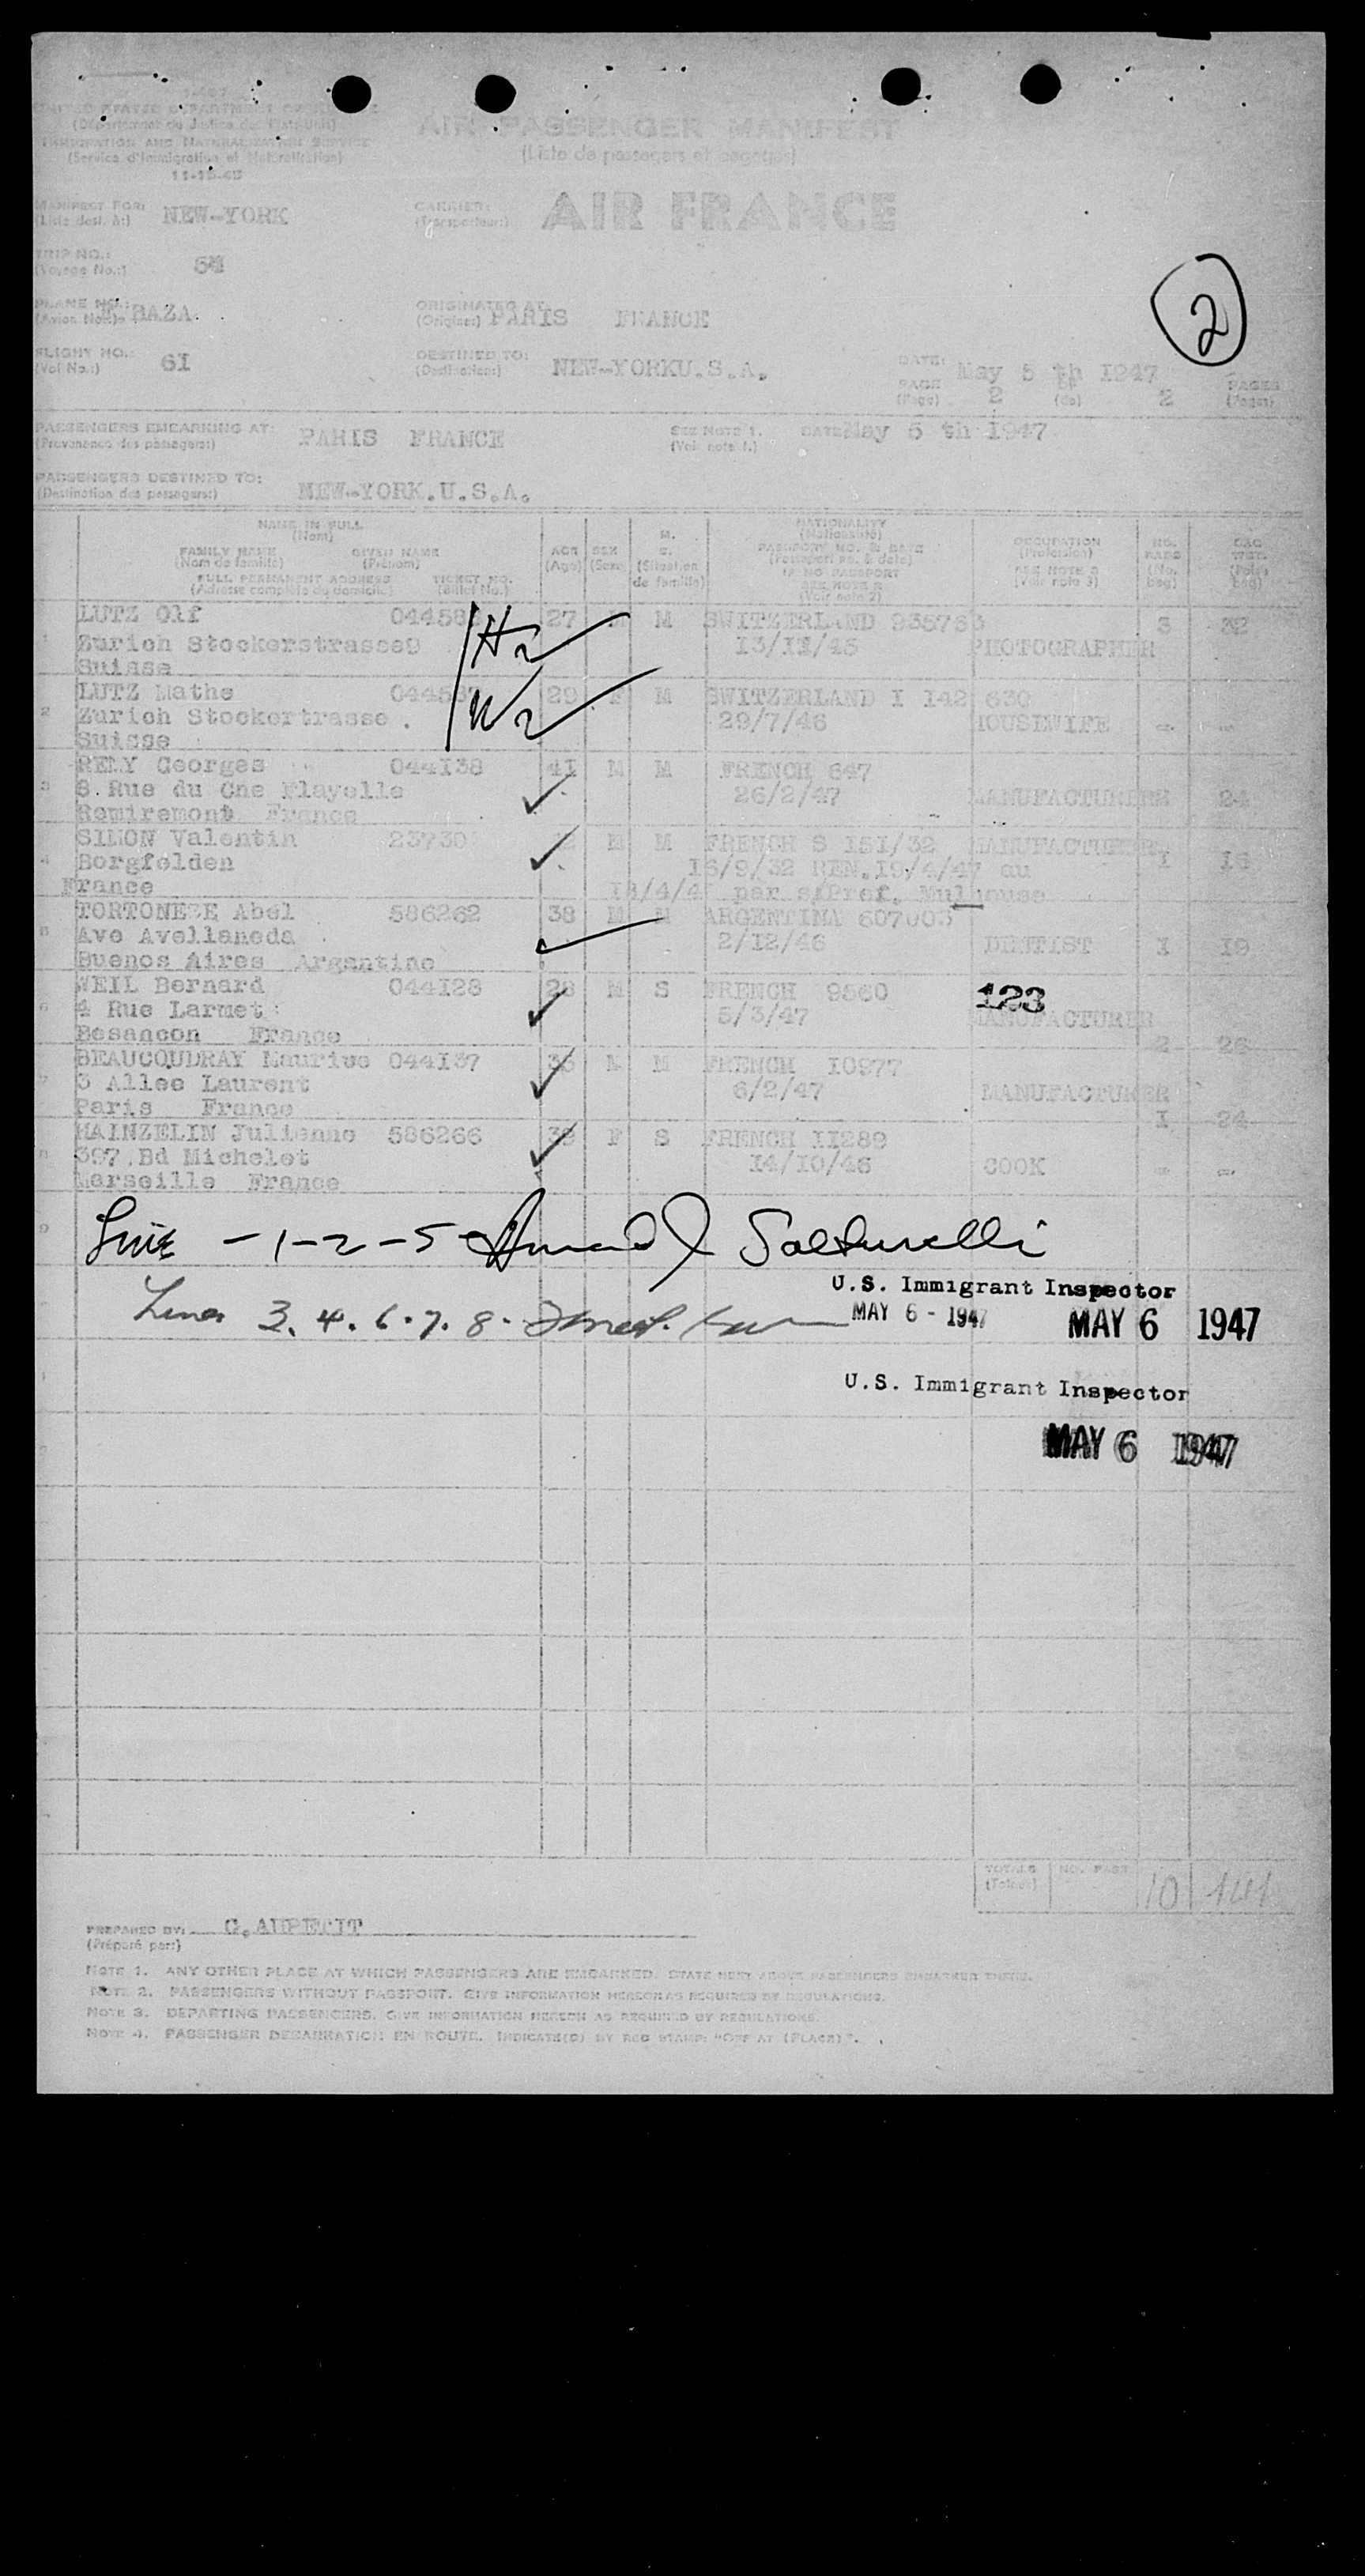 I-467
UNITED STATES DEPARTMENT OF JUSTICE
(Département de Justice des Etats-Unis)
IMMIGRATION AND NATURALIZATION SERVICE
(Service d'Immigration et Naturalisation)
11-15-45
AIR PASSENGER MANIFEST
(Liste de passagers et bagages)
MANIFEST FOR: NEW-YORK
(Liste dest. à:)
CARRIER: AIR FRANCE
(Transporteur:)
TRIP NO.:
(Voyage No.:)
PLANE NO.: BAZA.
(Avion No.:)
ORIGINATED AT: PARIS FRANCE
(Origine:)
2
FLIGHT NO.: 61
(Vol No.:)
DESTINED TO: NEW-YORKU.S.A.
(Destination:)
DATE: May 5 th 1947
PAGE 2 OF 2 PAGES
(Page) (de) (Pages)
PASSENGERS EMBARKING AT: PARIS FRANCE
(Provenance des passagers:)
SEE NOTE 1. DATE May 5 th 1947
(Voir note 1.)
PASSENGERS DESTINED TO: NEW-YORK.U.S.A.
(Destination des passagers:)
NAME IN FULL
(Nom)
FAMILY NAME GIVEN NAME
(Nom de famille) (Prénom)
FULL PERMANENT ADDRESS TICKET NO.
(Adresse complète du domicile) (Billet No.)
AGE
(Age)
SEX
(Sexe)
M.
S.
(Situation
de famille)
NATIONALITY
(Nationalité)
PASSPORT NO. & DATE
(Passeport no. & date)
IF NO PASSPORT
SEE NOTE 2
(Voir note 2)
OCCUPATION
(Profession)
SEE NOTE 3
(Voir note 3)
NO.
BAGS
(No.
bag)
BAG
WGT.
(Poids
bag)
LUTZ Olf 27 M M SWITZERLAND 3
1 Zurich Stockerstrasse9 PHOTOGRAPHER
Suisse
H2
LUTZ Mathe 29 F M SWITZERLAND I 142 630
2 Zurich Stockertrasse . 29/7/46 HOUSEWIFE - -
Suisse
W2
REMY Georges 044138 41 M M FRENCH 647
3 8.Rue du Cne Flayelle 26/2/47 24
Remiremont France
SIMON Valentin M M FRENCH S 151/32
4 Borgfelden 16/9/32 REN.19/4/47 au 1
France par s/Pref. Mulhouse
TORTONESE Abel 586262 38 M ARGENTINA
5 Ave Avellaneda 2/12/46 DENTIST 1 19
Buenos Aires Argentine
WEIL Bernard 044128 28 M S FRENCH 9560 123
6 4 Rue Larmet 5/3/47 MANUFACTURER
Besancon France 2 26
BEAUCOUDRAY Maurice 044137 M M FRENCH 10977
7 3 Allee Laurent 6/2/47 MANUFACTURER
Paris France 1 24
HAINZELIN Julienne 586266 39 F S FRENCH 11289
8 397.Bd Michelet 14/10/46 COOK - -
Marseille France
9 Line -1-2-5
U.S. Immigrant Inspector
Lines 3. 4. 6. 7. 8. MAY 6 - 1947 MAY 6 1947
U.S. Immigrant Inspector
MAY 6 1947
TOTALS NO. PASS 10
(Totaux)
PREPARED BY:
(Préparé par:)
NOTE 1. ANY OTHER PLACE AT WHICH PASSENGERS ARE EMBARKED. STATE NEXT ABOVE PASSENGERS EMBARKED THERE.
NOTE 2. PASSENGERS WITHOUT PASSPORT. GIVE INFORMATION HEREON AS REQUIRED BY REGULATIONS.
NOTE 3. DEPARTING PASSENGERS. GIVE INFORMATION HEREON AS REQUIRED BY REGULATIONS.
NOTE 4. PASSENGER DEBARKATION EN ROUTE. INDICATE(D) BY RED STAMP: "OFF AT (PLACE)".